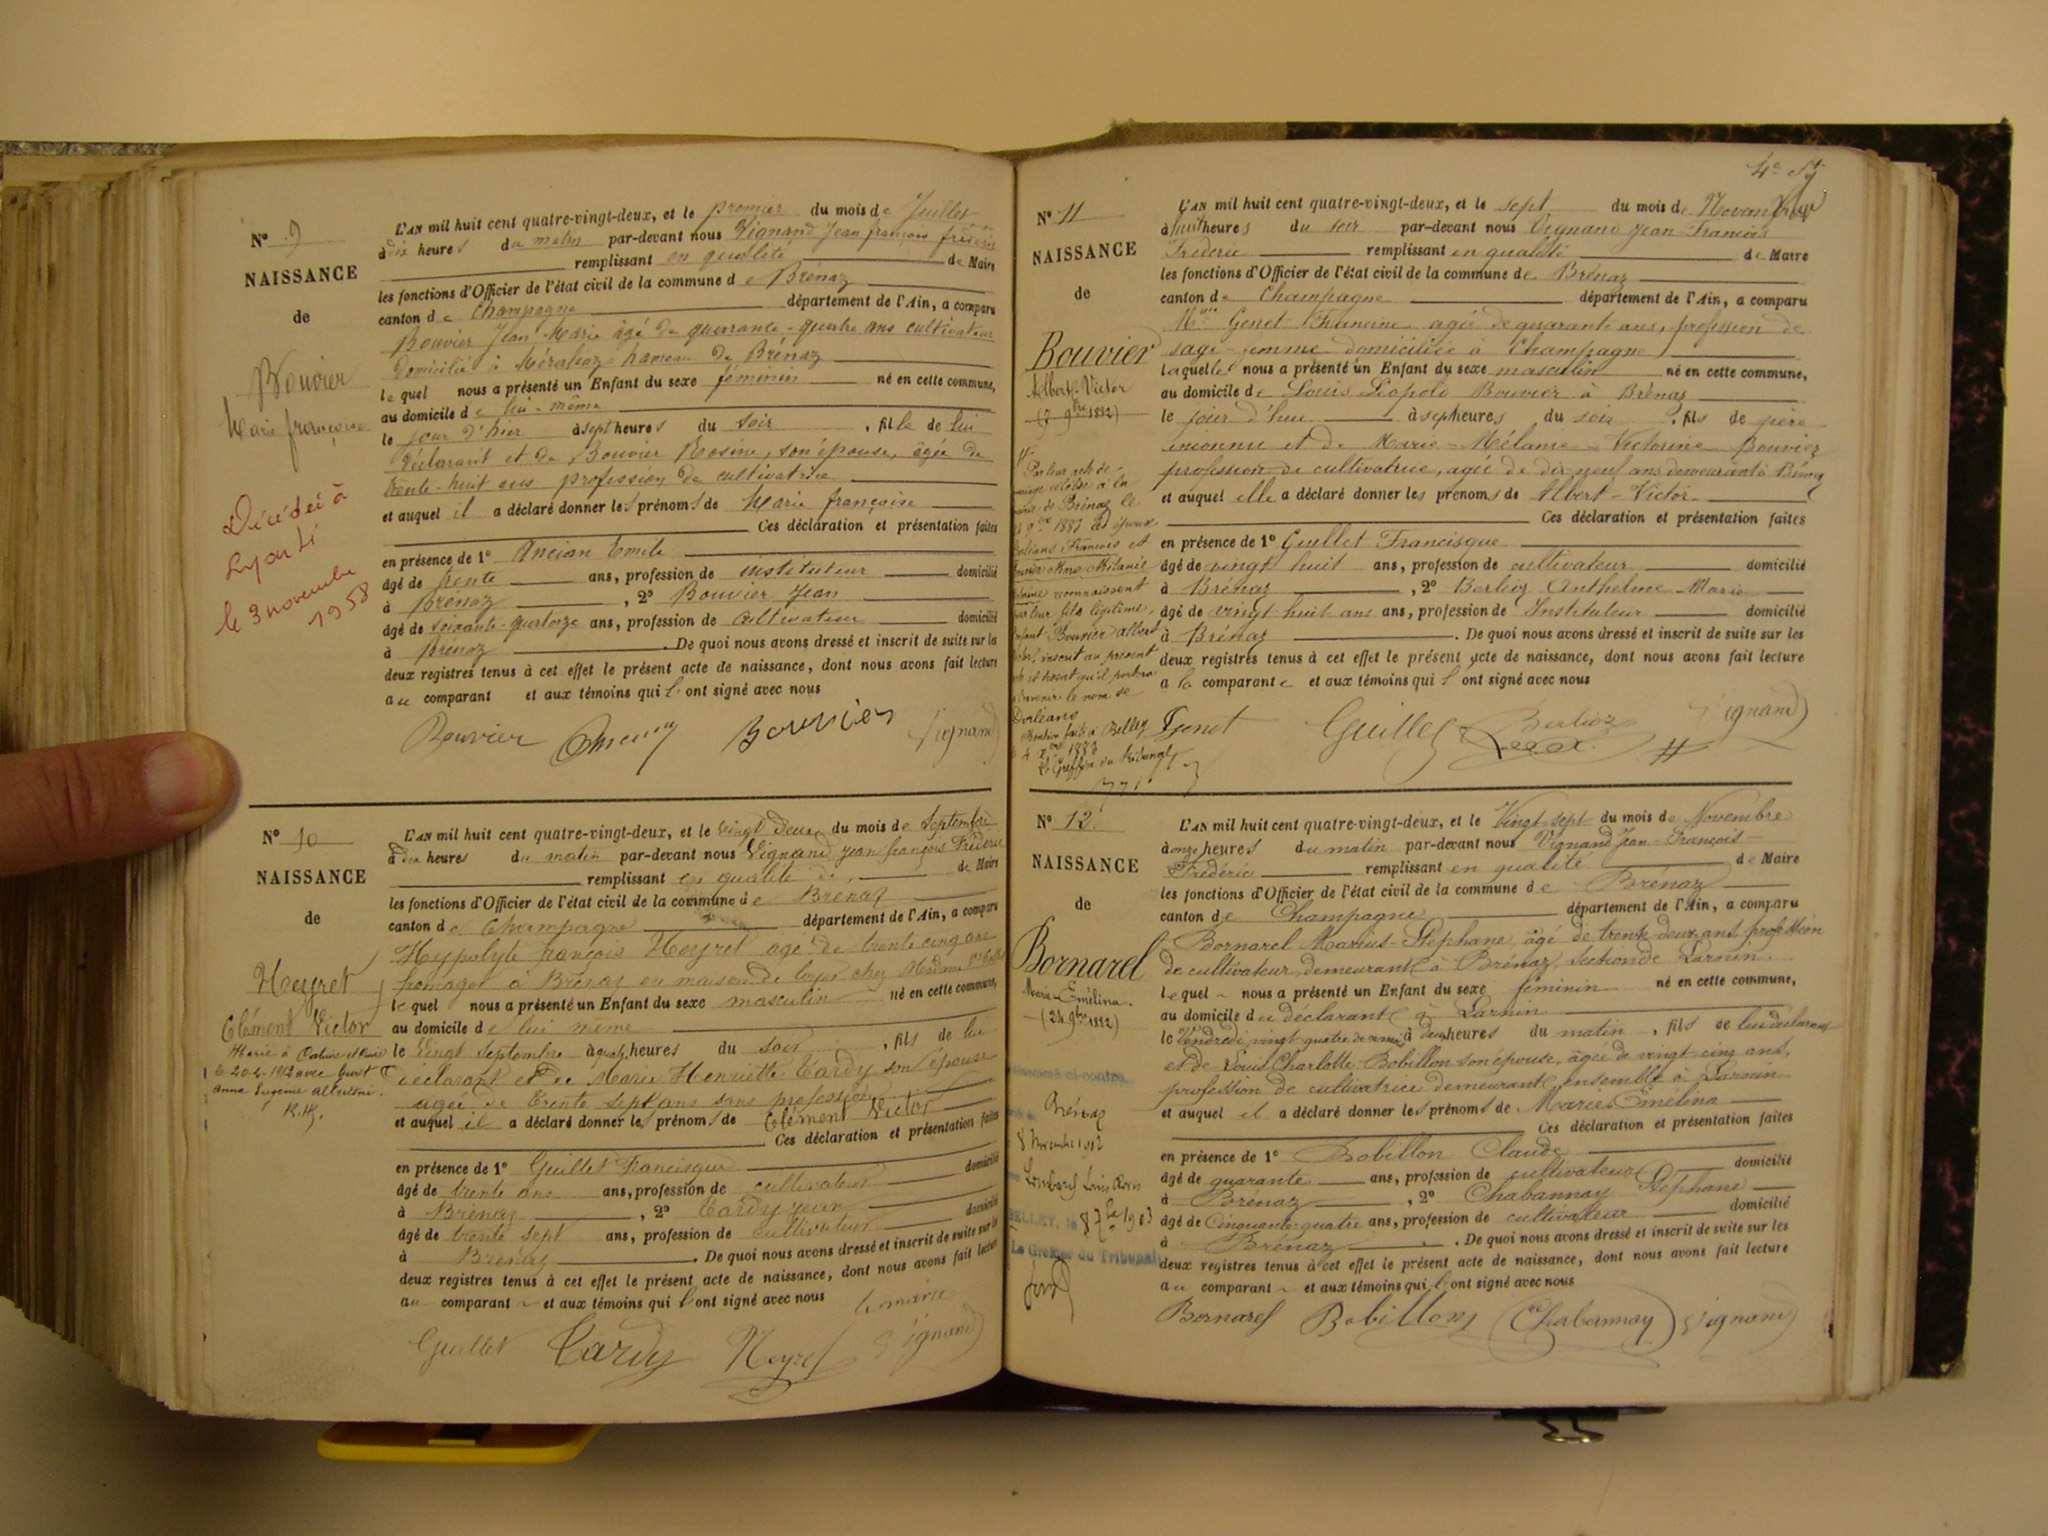 N° 9
NAISSANCE
de
Bouvier
Marie françoise
Décédée à
Lyon
le 3 novembre
1958
L'AN mil huit cent quatre-vingt-deux, et le premier du mois de Juillet
à dix heures du matin par-devant nous Vignand Jean françois frédéric
remplissant en qualité de Maire
les fonctions d'Officier de l'état civil de la commune de Brénaz
canton de Champagne département de l'Ain, a comparu
Bouvier Jean Marie âgé de quarante-quatre ans cultivateur
domicilié à hameau de Brénaz
lequel nous a présenté un Enfant du sexe féminin né en cette commune,
au domicile de lui-même
le jour d'hier à sept heures du soir, fille de lui
déclarant et de Bouvier Rosine, son épouse, âgée de
trente-huit ans profession de cultivatrice
et auquel il a déclaré donner les prénoms de Marie françoise
Ces déclaration et présentation faites
en présence de 1° Ancian Emile
âgé de trente ans, profession de instituteur domicilié
à Brénaz, 2° Bouvier Jean
âgé de soixante-quatorze ans, profession de cultivateur domicilié
à Brénaz. De quoi nous avons dressé et inscrit de suite sur les
deux registres tenus à cet effet le présent acte de naissance, dont nous avons fait lecture
au comparant et aux témoins qui l'ont signé avec nous
Bouvier Ancian Bouvier Vignand
N° 10
NAISSANCE
de
Heyret
Clément Victor
Anna Eugénie
L'AN mil huit cent quatre-vingt-deux, et le vingt deux du mois de Septembre
à dix heures du matin par-devant nous Vignand Jean françois Frédéric
remplissant en qualité de Maire
les fonctions d'Officier de l'état civil de la commune de Brénaz
canton de Champagne département de l'Ain, a comparu
Hyppolyte françois Heyret âgé de trente cinq ans
fromager à Brénaz en maison de loyer chez Madame
lequel nous a présenté un Enfant du sexe masculin né en cette commune,
au domicile de lui même
le vingt septembre à quatre heures du soir, fils de lui
déclarant et de Marie Henriette Tardy son épouse
âgée de trente sept ans sans profession
et auquel il a déclaré donner les prénoms de Clément Victor
Ces déclaration et présentation faites
en présence de 1° Guillet Francisque domicilié
âgé de trente ans ans, profession de cultivateur
à Brénaz, 2° Tardy Jean domicilié
âgé de trente sept ans, profession de cultivateur
à Brénaz. De quoi nous avons dressé et inscrit de suite sur les
deux registres tenus à cet effet le présent acte de naissance, dont nous avons fait lecture
au comparant et aux témoins qui l'ont signé avec nous le maire
Guillet Tardy Heyret Vignand
N° 11
NAISSANCE
de
Bouvier
Albert-Victor
(7 9bre 1882)
Par leur acte de
mariage célébré à la
mairie de Brénaz le
1883 les époux
Orléans François et
reconnaissent
pour leur fils légitime,
l'enfant Bouvier Albert
inscrit au présent
qu'il portera
à l'avenir le nom de
Orléans
Mention faite à Belley
1883
Le Greffier du tribunal
L'AN mil huit cent quatre-vingt-deux, et le sept du mois de Novembre
à huit heures du soir par-devant nous Vignand Jean François
Frédéric remplissant en qualité de Maire
les fonctions d'Officier de l'état civil de la commune de Brénaz
canton de Champagne département de l'Ain, a comparu
Mme Genet Francine âgée de quarante ans, profession de
sage-femme domiciliée à Champagne
laquelle nous a présenté un Enfant du sexe masculin né en cette commune,
au domicile de Louis Léopold Bouvier à Brénaz
le jour d'hui à sept heures du soir, fils de père
inconnu et de Marie-Mélanie-Victorine Bouvier
profession de cultivatrice, âgée de dix neuf ans demeurant à Brénaz
et auquel elle a déclaré donner les prénoms de Albert-Victor
Ces déclaration et présentation faites
en présence de 1° Guillet Francisque
âgé de vingt huit ans, profession de cultivateur domicilié
à Brénaz, 2° Berlioz Anthelme Marie
âgé de vingt huit ans ans, profession de Instituteur domicilié
à Brénaz. De quoi nous avons dressé et inscrit de suite sur les
deux registres tenus à cet effet le présent acte de naissance, dont nous avons fait lecture
a la comparante et aux témoins qui l'ont signé avec nous
Genet Guillet Berlioz Vignand
N° 12
NAISSANCE
de
Bornarel
Marie-Emélina.
(24 9bre 1882)
ci-contre
Brénaz
8 Novembre 1902
Lombard Louis
BELLEY, le 8 7bre 1903
Le Greffier du Tribunal
L'AN mil huit cent quatre-vingt-deux, et le Vingt sept du mois de Novembre
à onze heures du matin par-devant nous Vignand Jean-François-
Frédéric remplissant en qualité de Maire
les fonctions d'Officier de l'état civil de la commune de Brénaz
canton de Champagne département de l'Ain, a comparu
Bornarel Marius-Stéphane, âgé de trente deux ans profession
de cultivateur, demeurant à Brénaz, section de Larnin.
lequel nous a présenté un Enfant du sexe féminin né en cette commune,
au domicile du déclarant à Larnin
le Vendredi vingt quatre de ce mois à deux heures du matin, fils de lui déclarant
et de Louise Charlotte Bobillon son épouse, âgée de vingt cinq ans,
profession de cultivatrice demeurant ensemble à Larnin
et auquel il a déclaré donner les prénoms de Marie-Emélina
Ces déclaration et présentation faites
en présence de 1° Bobillon Claude
âgé de quarante ans, profession de cultivateur domicilié
à Brénaz, 2° Chabannay Stéphane
âgé de Cinquante-quatre ans, profession de cultivateur domicilié
à Brénaz. De quoi nous avons dressé et inscrit de suite sur les
deux registres tenus à cet effet le présent acte de naissance, dont nous avons fait lecture
au comparant et aux témoins qui l'ont signé avec nous
Bornarel Bobillon Chabannay Vignand